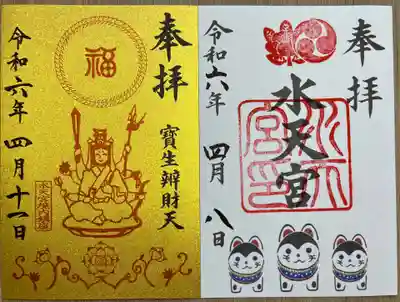 奉拝
水天宮
水天宮印
令和六年 四月 八日
奉拝
寶生辨財天
福
令和六年 四月十一日